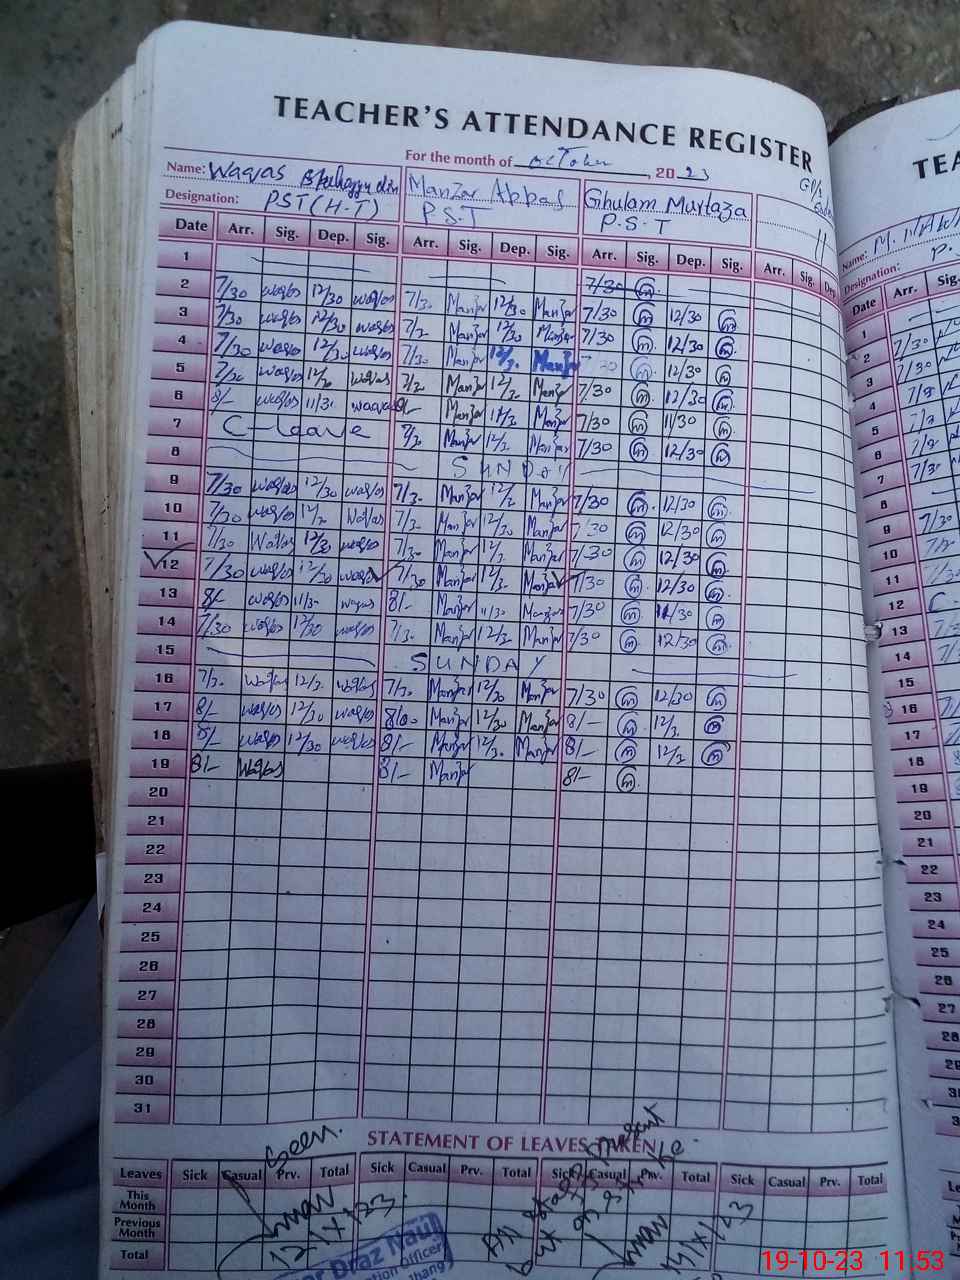 TEACHER'S ATTENDANCE REGISTER
For the month of October, 2023
Name: Waqas Manzar Abbas Ghulam Murtaza
Designation: PST (H-T) P.S.T P.S.T
Date Arr. Sig. Dep. Sig. Arr. Sig. Dep. Sig. Arr. Sig. Dep. Sig. Arr. Sig.
1
2 7/30 waqas 12/30 waqas 7/3. Manzar 12/30 Manzar 7/30 12/30
3 7/30 waqas 12/30 waqas 7/3. Manzar 12/30 Manzar 7/30 12/30
4 7/30 waqas 12/30 waqas 7/30 Manzar 12/3. Manzar 7/30 12/30
5 7/30 waqas 12/30 waqas 7/3. Manzar 12/3. Manzar 7/30 12/30
6 8/- waqas 11/3. waqas 8/- Manzar 11/3. Manzar 7/30 11/30
7 C-leave 7/3. Manzar 12/3. Manzar 7/30 12/30
8 SUNDAY
9 7/30 waqas 12/30 waqas 7/3. Manzar 12/3. Manzar 7/30 12/30
10 7/30 waqas 12/3. Waqas 7/3. Manzar 12/30 Manzar 7/30 12/30
11 7/30 Waqas 12/30 waqas 7/30 Manzar 12/3. Manzar 7/30 12/30
12 7/30 waqas 12/30 waqas 7/30 Manzar 12/3. Manzar 7/30 12/30
13 8/- waqas 11/3. waqas 8/- Manzar 11/30 Manzar 7/30 11/30
14 7/30 waqas 12/30 waqas 7/3. Manzar 12/3. Manzar 7/30 12/30
15 SUNDAY
16 7/3. Waqas 12/3. waqas 7/3. Manzar 12/30 Manzar 7/30 12/30
17 8/- waqas 12/30 waqas 8/00 Manzar 12/30 Manzar 8/- 12/3.
18 8/- waqas 12/30 waqas 8/- Manzar 12/3. Manzar 8/- 12/3.
19 8/- Waqas 8/- Manzar 8/-
20
21
22
23
24
25
26
27
28
29
30
31
STATEMENT OF LEAVES TAKEN
Leaves Sick Casual Prv. Total Sick Casual Prv. Total Sick Casual Prv. Total Sick Casual Prv. Total
This Month
Previous Month
Total
Seen.
12/X/23.
All staff present
Draz Naul
Officer
Jhang
19-10-23 11.53
TEA
Name: M. NAW
Designation: P.
Date Arr. Sig.
1
2
3
4
5
6
7
8
9
10
11
12
13
14
15
16
17
18
19
20
21
22
23
24
25
26
27
28
29
30